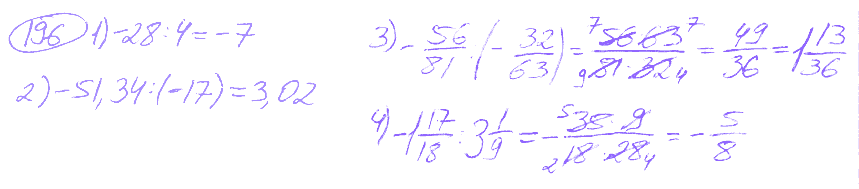 196 1) -28 : 4 = -7
2) -51,34 : (-17) = 3,02
3) - 56/81 : (- 32/63) = 56·63/81·32 = 49/36 = 1 13/36
4) -1 17/18 : 3 1/9 = - 35·9/18·28 = - 5/8